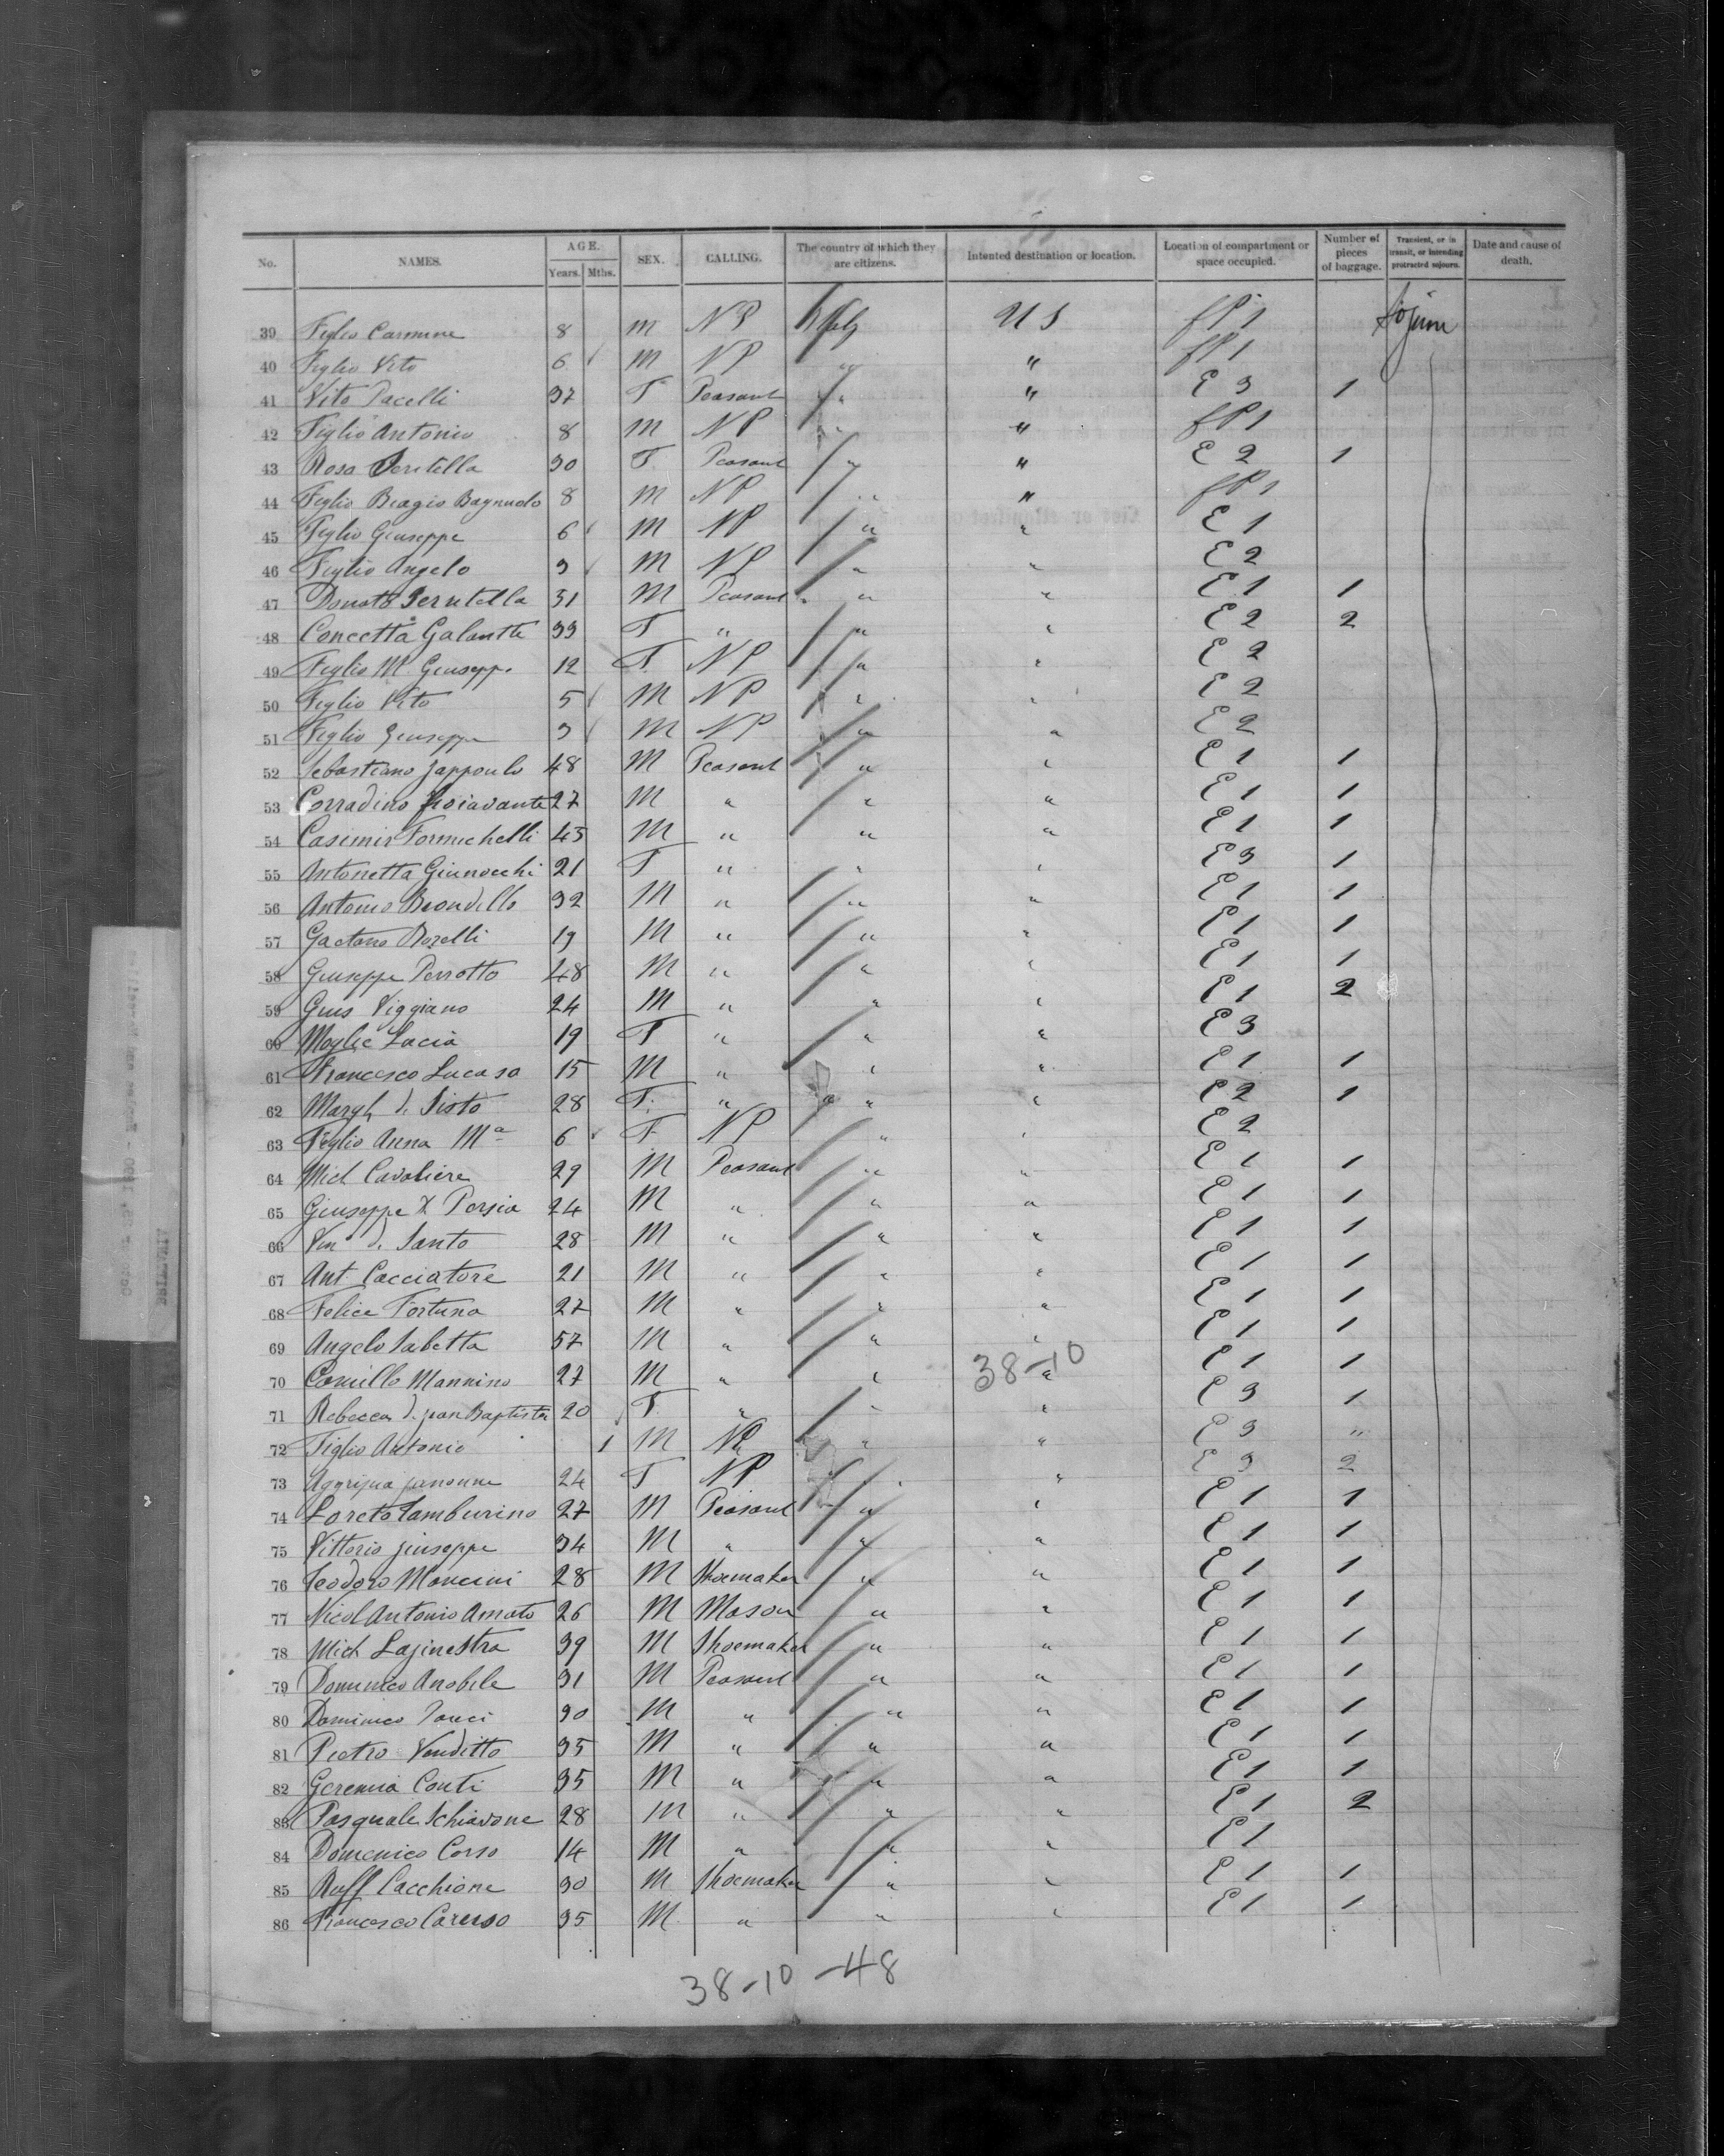 No. NAMES. AGE. Years. Mths. SEX. CALLING. The country of which they are citizens. Intented destination or location. Location of compartment or space occupied. Number of pieces of baggage. Transient, or in transit, or intending protracted sojourn. Date and cause of death.
39 Figlio Carmine 8 M NP Italy US fP1 Sojurn
40 Figlio Vito 6 M NP " " fP1
41 Vito Pacelli 37 F Peasant " " E 3 1
42 Figlio Antonio 8 M NP " " fP1
43 Rosa 30 F Peasant " " E 2 1
44 Figlio Biagio Bagnuolo 8 M NP " " fP1
45 Figlio Giuseppe 6 M NP " " E 1
46 Figlio Angelo 3 M NP " " E 2
47 Donato 31 M Peasant " " E 1 1
48 Concetta Galante 33 F " " " E 2 2
49 Figlio M. Giusepp. 12 F NP " " E 2
50 Figlio Vito 5 M NP " " E 2
51 Figlio Giuseppe 3 M NP " " E 2
52 Sebastiano 48 M Peasant " " E 1 1
53 Corradino 27 M " " " E 1 1
54 Casimir Formichelli 43 M " " " E 1 1
55 Antonetta Giunocchi 21 F " " " E 3 1
56 Antonio Biondello 32 M " " " E 1 1
57 Gaetano Rozelli 19 M " " " E 1 1
58 Giuseppe Perrotto 48 M " " " E 1 1
59 Gius Viggiano 24 M " " " E 1 2
60 Moglie Lucia 19 F " " " E 3
61 Francesco Lucaso 15 M " " " E 1 1
62 Margh di Sisto 28 F. " " " E 2 1
63 Figlio Anna Ma 6 F NP " " E 2
64 Mich Cavaliere 29 M Peasant " " E 1 1
65 Giuseppe Persia 24 M " " " E 1 1
66 Vin di Santo 28 M " " " E 1 1
67 Ant Cacciatore 21 M " " " E 1 1
68 Felice Fortuna 27 M " " " E 1 1
69 Angelo Sabetta 57 M " " " E 1 1
70 Camillo Mannino 27 M " " 38-10 " E 1 1
71 Rebecca d. Baptista 20 F " " " E 3 1
72 Figlio Antonio 1 M NP " " E 3 "
73 24 F NP " " E 3 2
74 Loreto Tamburino 27 M Peasant " " E 1 1
75 Vittorio Giuseppe 34 M " " " E 1 1
76 Teodoro Mancini 28 M Shoemaker " " E 1 1
77 Nicol Antonio Amato 26 M Mason " " E 1 1
78 Mich Laginestra 39 M Shoemaker " " E 1 1
79 Domenico Anobile 31 M Peasant " " E 1 1
80 Dominico 30 M " " " E 1 1
81 Pietro Venditto 35 M " " " E 1 1
82 Geremia Conti 35 M " " " E 1 1
83 Pasquale Schiavone 28 M " " " E 1 2
84 Domenico Corso 14 M " " " E 1
85 Raff Cacchione 30 M Shoemaker " " E 1 1
86 Francesco Caruso 35 M " " " E 1 1
38-10-48